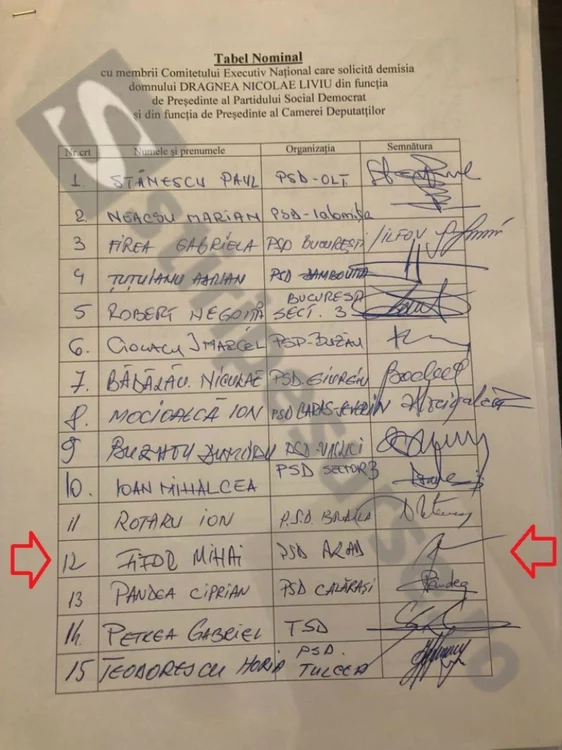 Tabel Nominal
cu membrii Comitetului Executiv Național care solicită demisia
domnului DRAGNEA NICOLAE LIVIU din funcția
de Președinte al Partidului Social Democrat
și din funcția de Președinte al Camerei Deputaților
Nr.crt Numele și prenumele Organizația Semnătura
1. STĂNESCU PAUL PSD-OLT
2. NEACȘU MARIAN PSD-Ialomița
3 FIREA GABRIELA PSD BUCUREȘTI/ILFOV
4 ȚUȚUIANU ADRIAN PSD DAMBOVITA
5 ROBERT NEGOIȚĂ BUCUREȘTI SECT. 3
6. CIOLACU MARCEL PSD-BUZĂU
7. BĂDĂLĂU NICULAE PSD-GIURGIU
8. MOCIOALCĂ ION PSD CARAS-SEVERIN
9 BUZATU DUMITRU PSD-VASLUI
10. IOAN MIHALCEA PSD SECTOR 3
11 ROTARU ION P.S.D. BRĂILA
12 FIFOR MIHAI PSD ARAD
13 PANDEA CIPRIAN PSD CALĂRAȘI Pandea
14. PETREA GABRIEL TSD
15 TEODORESCU HORIA PSD. TULCEA
stiripesurse.ro